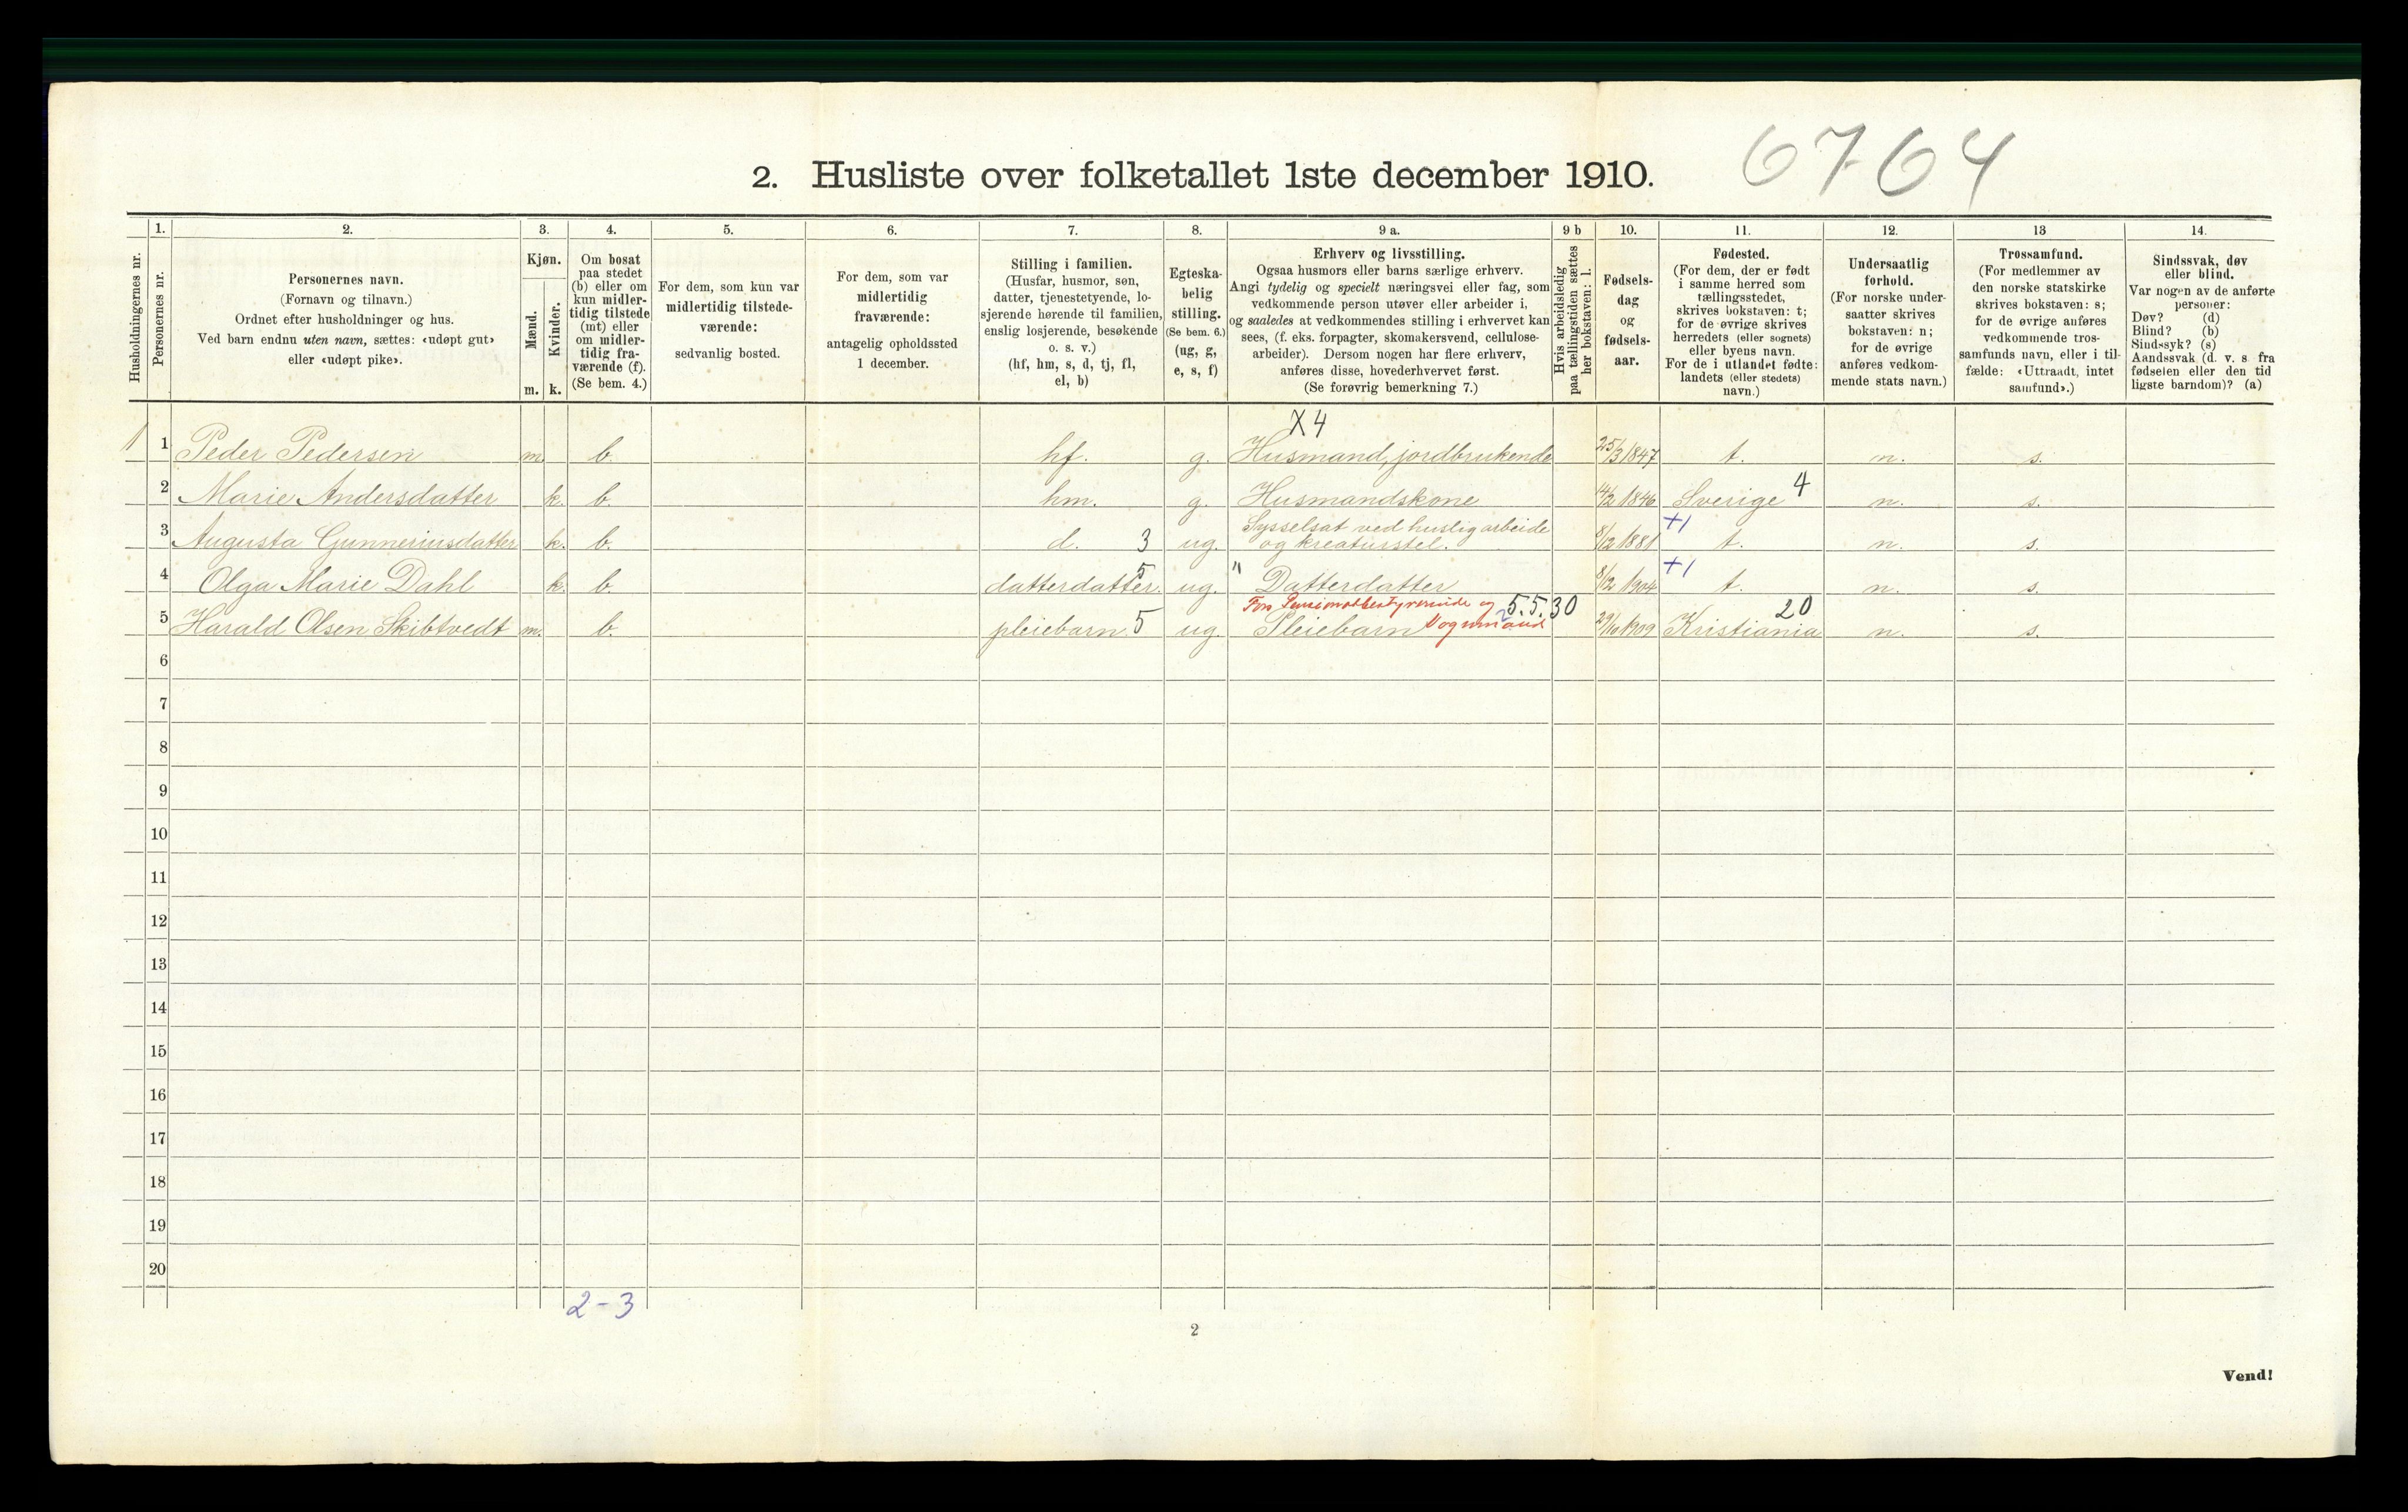 6764
2. Husliste over folketallet 1ste december 1910.
Husholdningernes nr.
1. Personernes nr.
2. Personernes navn.
(Fornavn og tilnavn.)
Ordnet efter husholdninger og hus.
Ved barn endnu uten navn, sættes: «udøpt gut»
eller «udøpt pike».
3. Kjøn.
Mænd. m.
Kvinder. k.
4. Om bosat
paa stedet
(b) eller om
kun midler-
tidig tilstede
(mt) eller
om midler-
tidig fra-
værende (f).
(Se bem. 4.)
5. For dem, som kun var
midlertidig tilstede-
værende:
sedvanlig bosted.
6. For dem, som var
midlertidig
fraværende:
antagelig opholdssted
1 december.
7. Stilling i familien.
(Husfar, husmor, søn,
datter, tjenestetyende, lo-
sjerende hørende til familien,
enslig losjerende, besøkende
o. s. v.)
(hf, hm, s, d, tj, fl,
el, b)
8. Egteska-
belig
stilling.
(Se bem. 6.)
(ug, g,
e, s, f)
9 a. Erhverv og livsstilling.
Ogsaa husmors eller barns særlige erhverv.
Angi tydelig og specielt næringsvei eller fag, som
vedkommende person utøver eller arbeider i,
og saaledes at vedkommendes stilling i erhvervet kan
sees, (f. eks. forpagter, skomakersvend, cellulose-
arbeider). Dersom nogen har flere erhverv,
anføres disse, hovederhvervet først.
(Se forøvrig bemerkning 7.)
9 b
Hvis arbeidsledig
paa tællingstiden sættes
her bokstaven: l.
10. Fødsels-
dag
og
fødsels-
aar.
11. Fødested.
(For dem, der er født
i samme herred som
tællingsstedet,
skrives bokstaven: t;
for de øvrige skrives
herredets (eller sognets)
eller byens navn.
For de i utlandet fødte:
landets (eller stedets)
navn.)
12. Undersaatlig
forhold.
(For norske under-
saatter skrives
bokstaven: n;
for de øvrige
anføres vedkom-
mende stats navn.)
13 Trossamfund.
(For medlemmer av
den norske statskirke
skrives bokstaven: s;
for de øvrige anføres
vedkommende tros-
samfunds navn, eller i til-
fælde: «Uttraadt, intet
samfund».)
14. Sindssvak, døv
eller blind.
Var nogen av de anførte
personer:
Døv? (d)
Blind? (b)
Sindssyk? (s)
Aandssvak (d. v. s. fra
fødselen eller den tid
ligste barndom)? (a)
X4
1 1 Peder Pedersen m. b. hf. g. Husmand, jordbrukende 25/3 1847 t. n. s.
2 Marie Andersdatter k. b. hm. g. Husmandskone 14/2 1846 Sverige 4 n. s.
3 Augusta Gunneriusdatter k. b. d. 3 ug. Sysselsat ved huslig arbeide
og kreaturstel. 8/12 1881 +1 t. n. s.
4 Olga Marie Dahl k. b. datterdatter. 5 ug. " Datterdatter 8/12 1904 +1 t. n. s.
5.5.30
5 Harald Olsen Skibtvedt m. b. pleiebarn 5 ug. Pleiebarn 29/10 1909 Kristiania 20 n. s.
6
7
8
9
10
11
12
13
14
15
16
17
18
19
20
2-3
2
Vend!